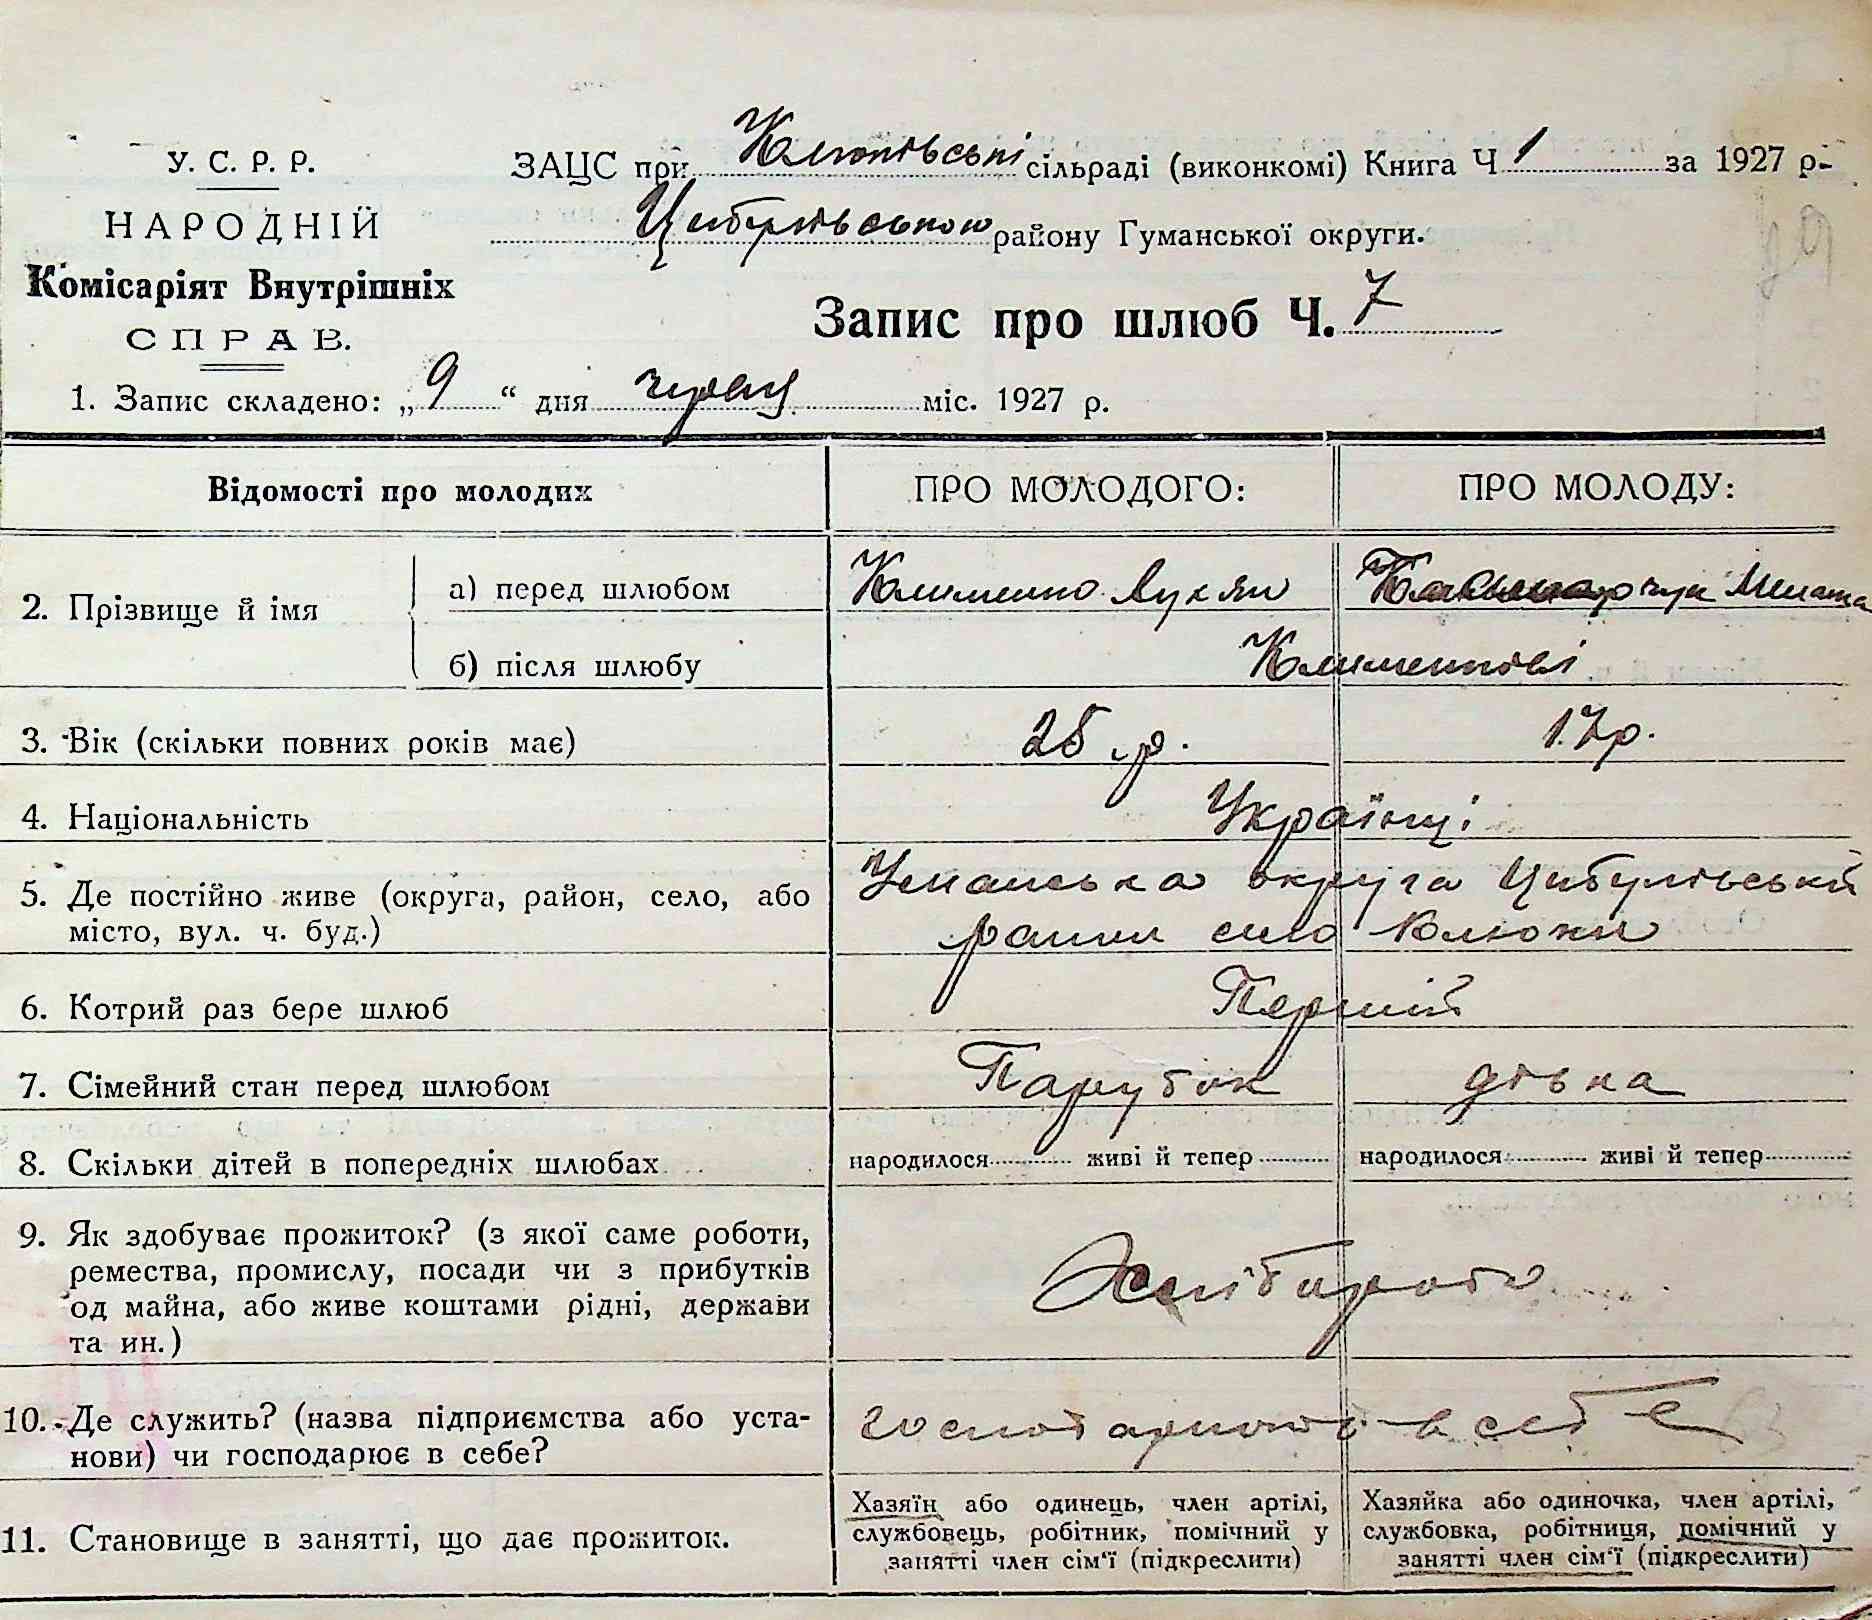 У. С. Р. Р.
НАРОДНІЙ
Комісаріят Внутрішніх
СПРАВ.
ЗАЦС при Клюківські сільраді (виконкомі) Книга Ч. 1 за 1927 р.
Цибулівського району Гуманської округи.
Запис про шлюб Ч. 7
1. Запис складено: „9“ дня червця міс. 1927 р.
Відомості про молодих
ПРО МОЛОДОГО:
ПРО МОЛОДУ:
2. Прізвище й імя
а) перед шлюбом
Клименко Лукян
б) після шлюбу
Клименкові
3. Вік (скільки повних років має)
25 р.
17 р.
4. Національність
Українці
5. Де постійно живе (округа, район, село, або
місто, вул. ч. буд.)
Уманська округа Цибулівський
район село Клюки
6. Котрий раз бере шлюб
Перший
7. Сімейний стан перед шлюбом
Парубок
дівка
8. Скільки дітей в попередніх шлюбах
народилося живі й тепер
народилося живі й тепер
9. Як здобуває прожиток? (з якої саме роботи,
ремества, промислу, посади чи з прибутків
од майна, або живе коштами рідні, держави
та ин.)
Хліборобо
10. Де служить? (назва підприємства або уста-
нови) чи господарює в себе?
господарюють в себе
11. Становище в занятті, що дає прожиток.
Хазяїн або одинець, член артілі,
службовець, робітник, помічний у
занятті член сім'ї (підкреслити)
Хазяйка або одиночка, член артілі,
службовка, робітниця, помічний у
занятті член сім'ї (підкреслити)